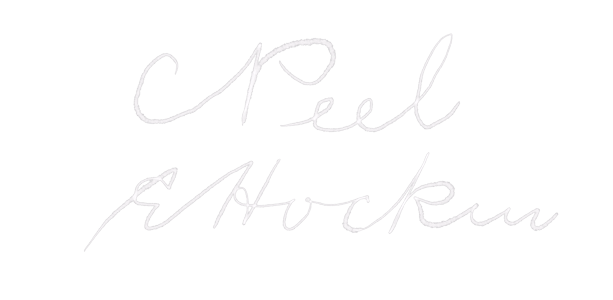 C Peel
E Hockin